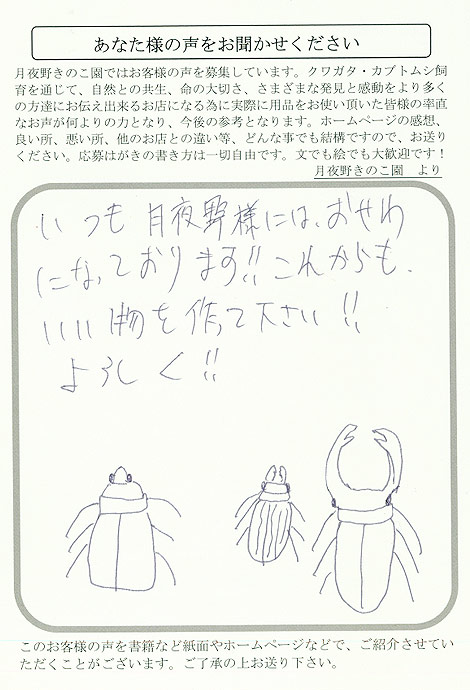 あなた様の声をお聞かせください
月夜野きのこ園ではお客様の声を募集しています。クワガタ・カブトムシ飼
育を通じて、自然との共生、命の大切さ、さまざまな発見と感動をより多く
の方達にお伝え出来るお店になる為に実際に用品をお使い頂いた皆様の率直
なお声が何よりの力となり、今後の参考となります。ホームページの感想、
良い所、悪い所、他のお店との違い等、どんな事でも結構ですので、お送り
ください。応募はがきの書き方は一切自由です。文でも絵でも大歓迎です！
月夜野きのこ園　より
いつも月夜野様には、おせわ
になっております!!これからも、
いい物を作って下さい!!
よろしく!!
このお客様の声を書籍など紙面やホームページなどで、ご紹介させてい
ただくことがございます。ご了承の上お送り下さい。